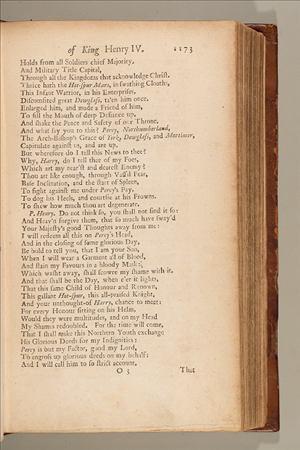 of King Henry IV. 1173
Holds from all Soldiers chief Majority,
And Military Title Capital,
Through all the Kingdoms that acknowledge Christ.
Thrice hath the Hot-spur Mars, in swathing Cloaths,
This Infant Warrior, in his Enterprises,
Discomfited great Dowglass, ta'en him once,
Enlarged him, and made a Friend of him,
To fill the Mouth of deep Defiance up,
And shake the Peace and Safety of our Throne.
And what say you to this? Percy, Northumberland,
The Arch-Bishop's Grace of York, Dowglass, and Mortimer,
Capitulate against us, and are up.
But wherefore do I tell this News to thee?
Why, Harry, do I tell thee of my Foes,
Which art my near'st and dearest Enemy?
Thou art like enough, through Vassal Fear,
Base Inclination, and the start of Spleen,
To fight against me under Percy's Pay,
To dog his Heels, and courtsie at his Frowns,
To shew how much thou art degenerate.
P. Henry. Do not think so, you shall not find it so:
And Heav'n forgive them, that so much have sway'd
Your Majesty's good Thoughts away from me:
I will redeem all this on Percy's Head,
And in the closing of some glorious Day,
Be bold to tell you, that I am your Son,
When I will wear a Garment all of Blood,
And stain my Favours in a bloody Mask:
Which washt away, shall scowre my shame with it.
And that shall be the Day, when e'er it lights,
That this same Child of Honour and Renown,
This gallant Hot-spur, this all-praised Knight,
And your unthought-of Harry, chance to meet:
For every Honour sitting on his Helm,
Would they were multitudes, and on my Head
My Shames redoubled. For the time will come,
That I shall make this Northern Youth exchange
His Glorious Deeds for my Indignities:
Percy is but my Factor, good my Lord,
To engross up glorious deeds on my behalf:
And I will call him to so strict account,
O 3 That